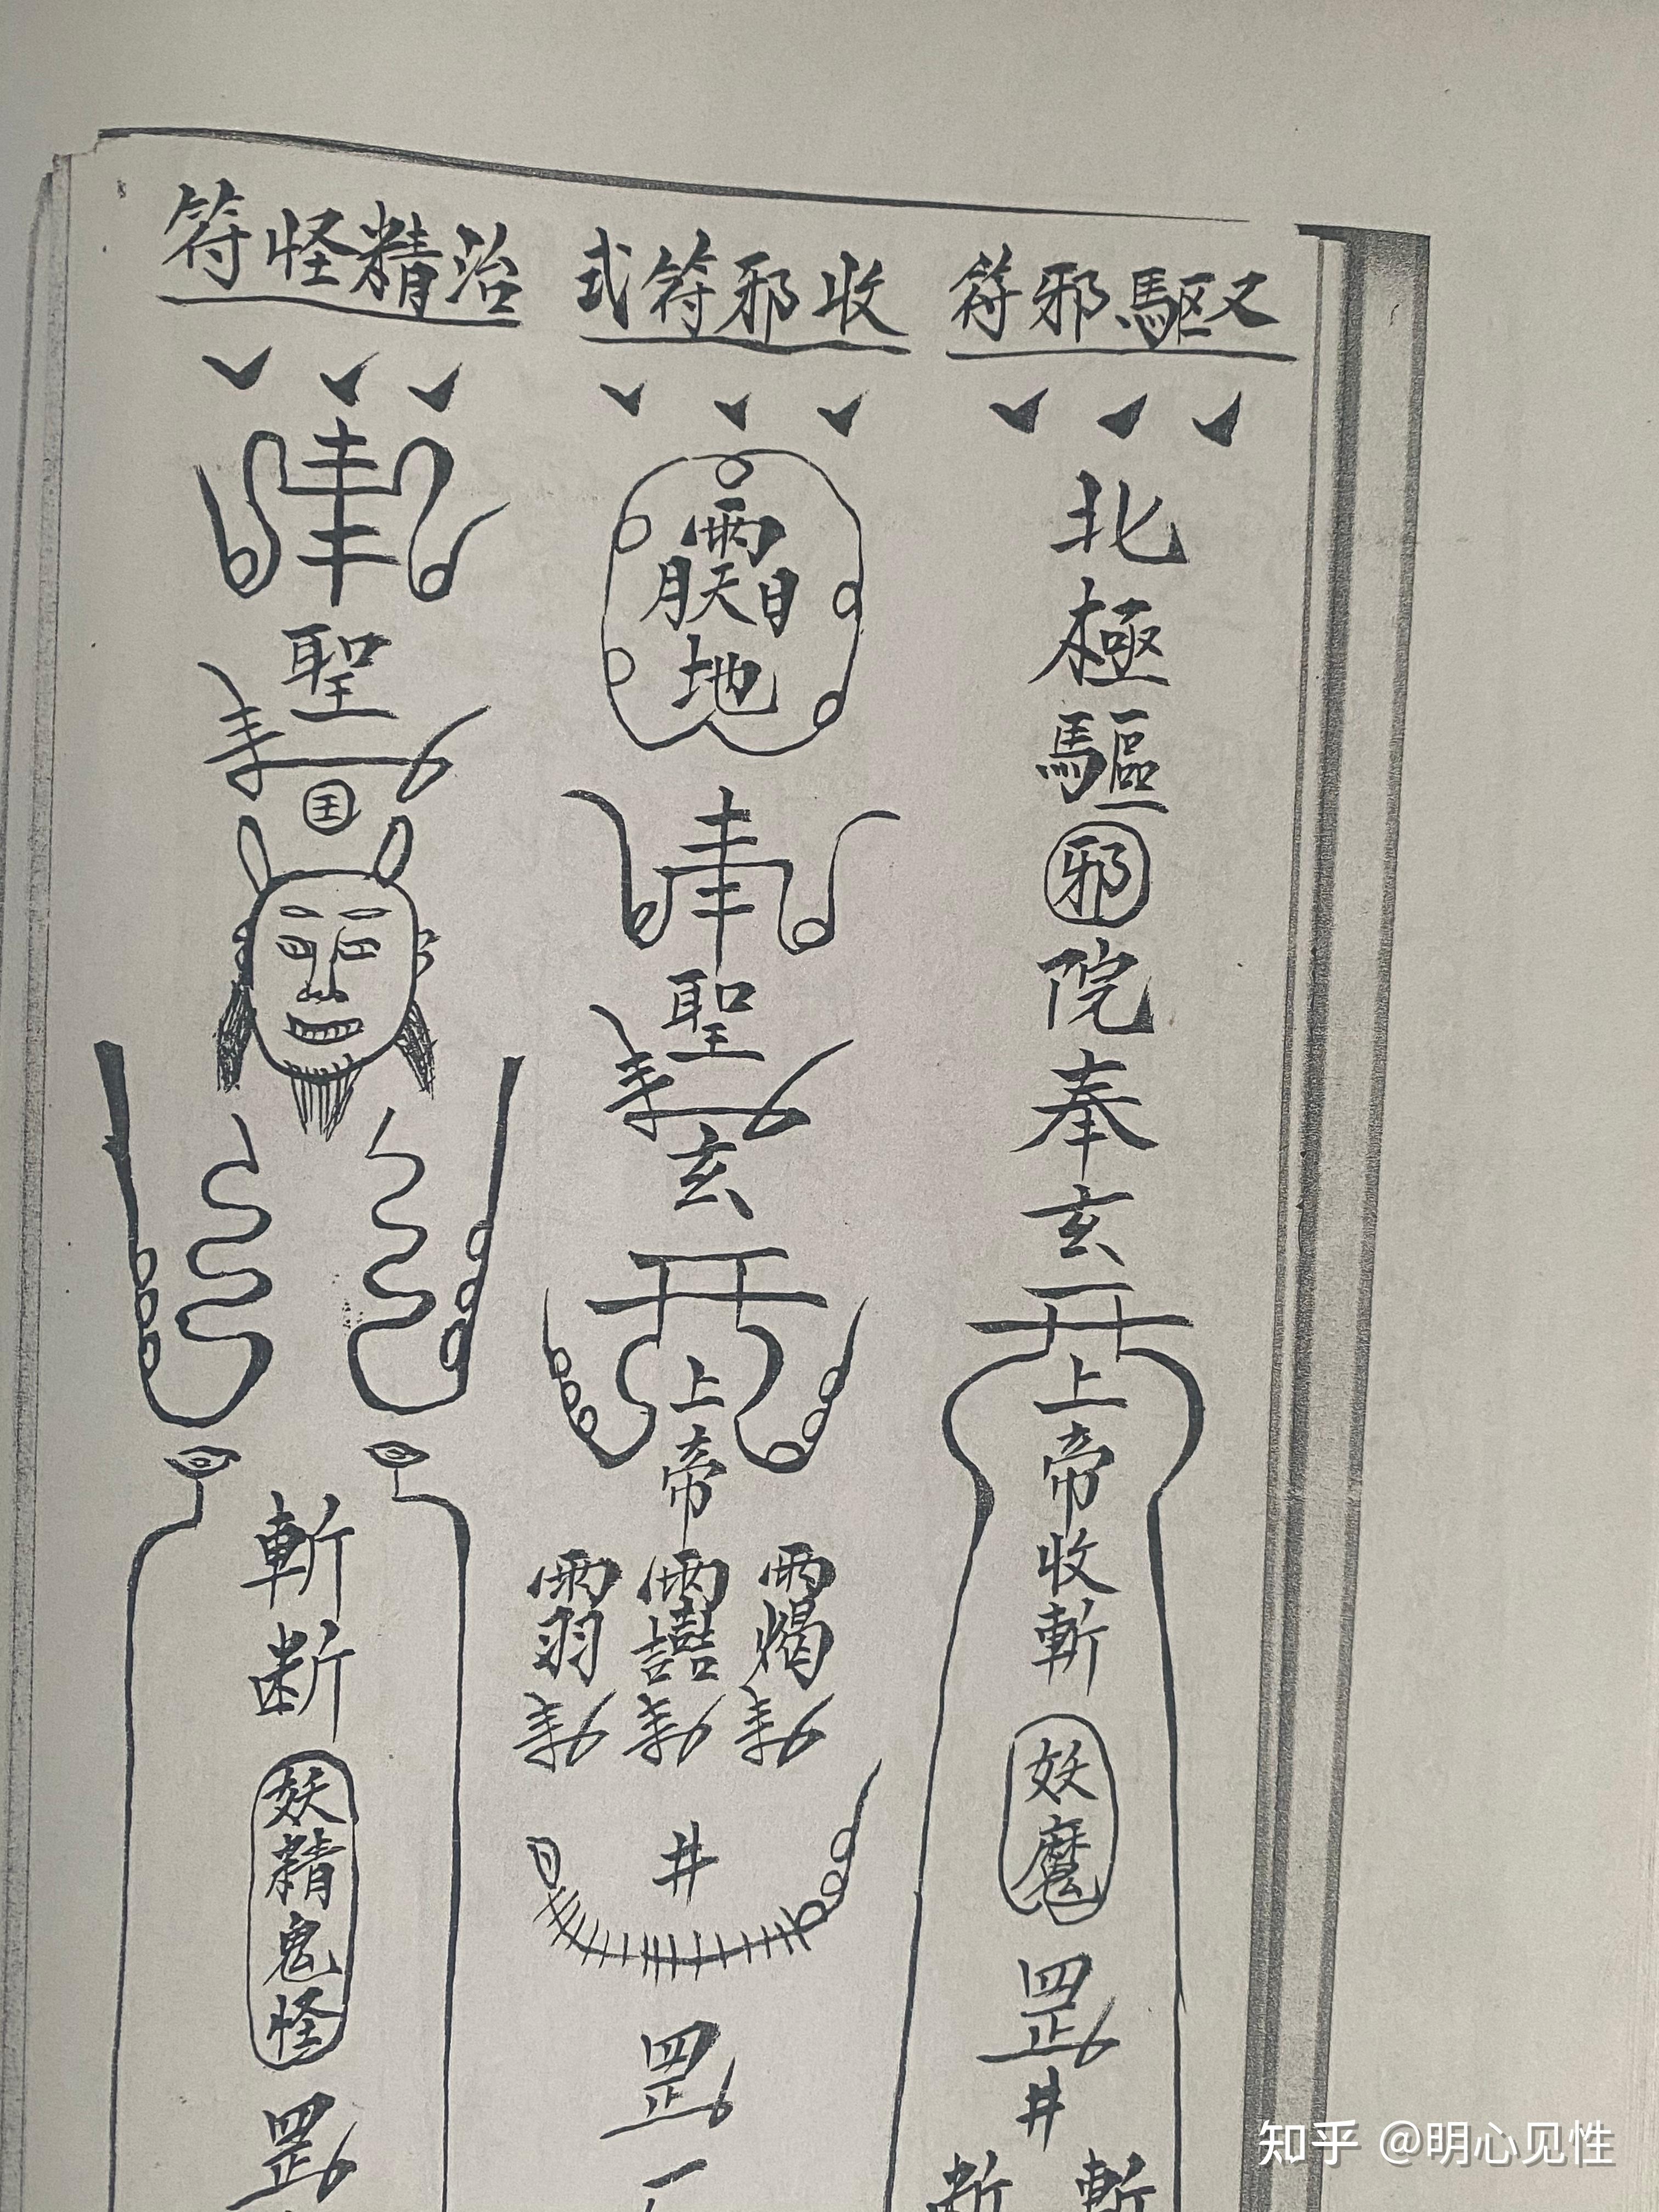 又驅邪符
北
極
驅
邪
院
奉
玄
上
帝
收
斬
妖
魔
罡
井
斬 断
收邪符式
月天日
地
聖
玄
上
帝
井
罡
治精怪符
聖
王
斬
断
妖
精
鬼
怪
罡
知乎 @明心见性